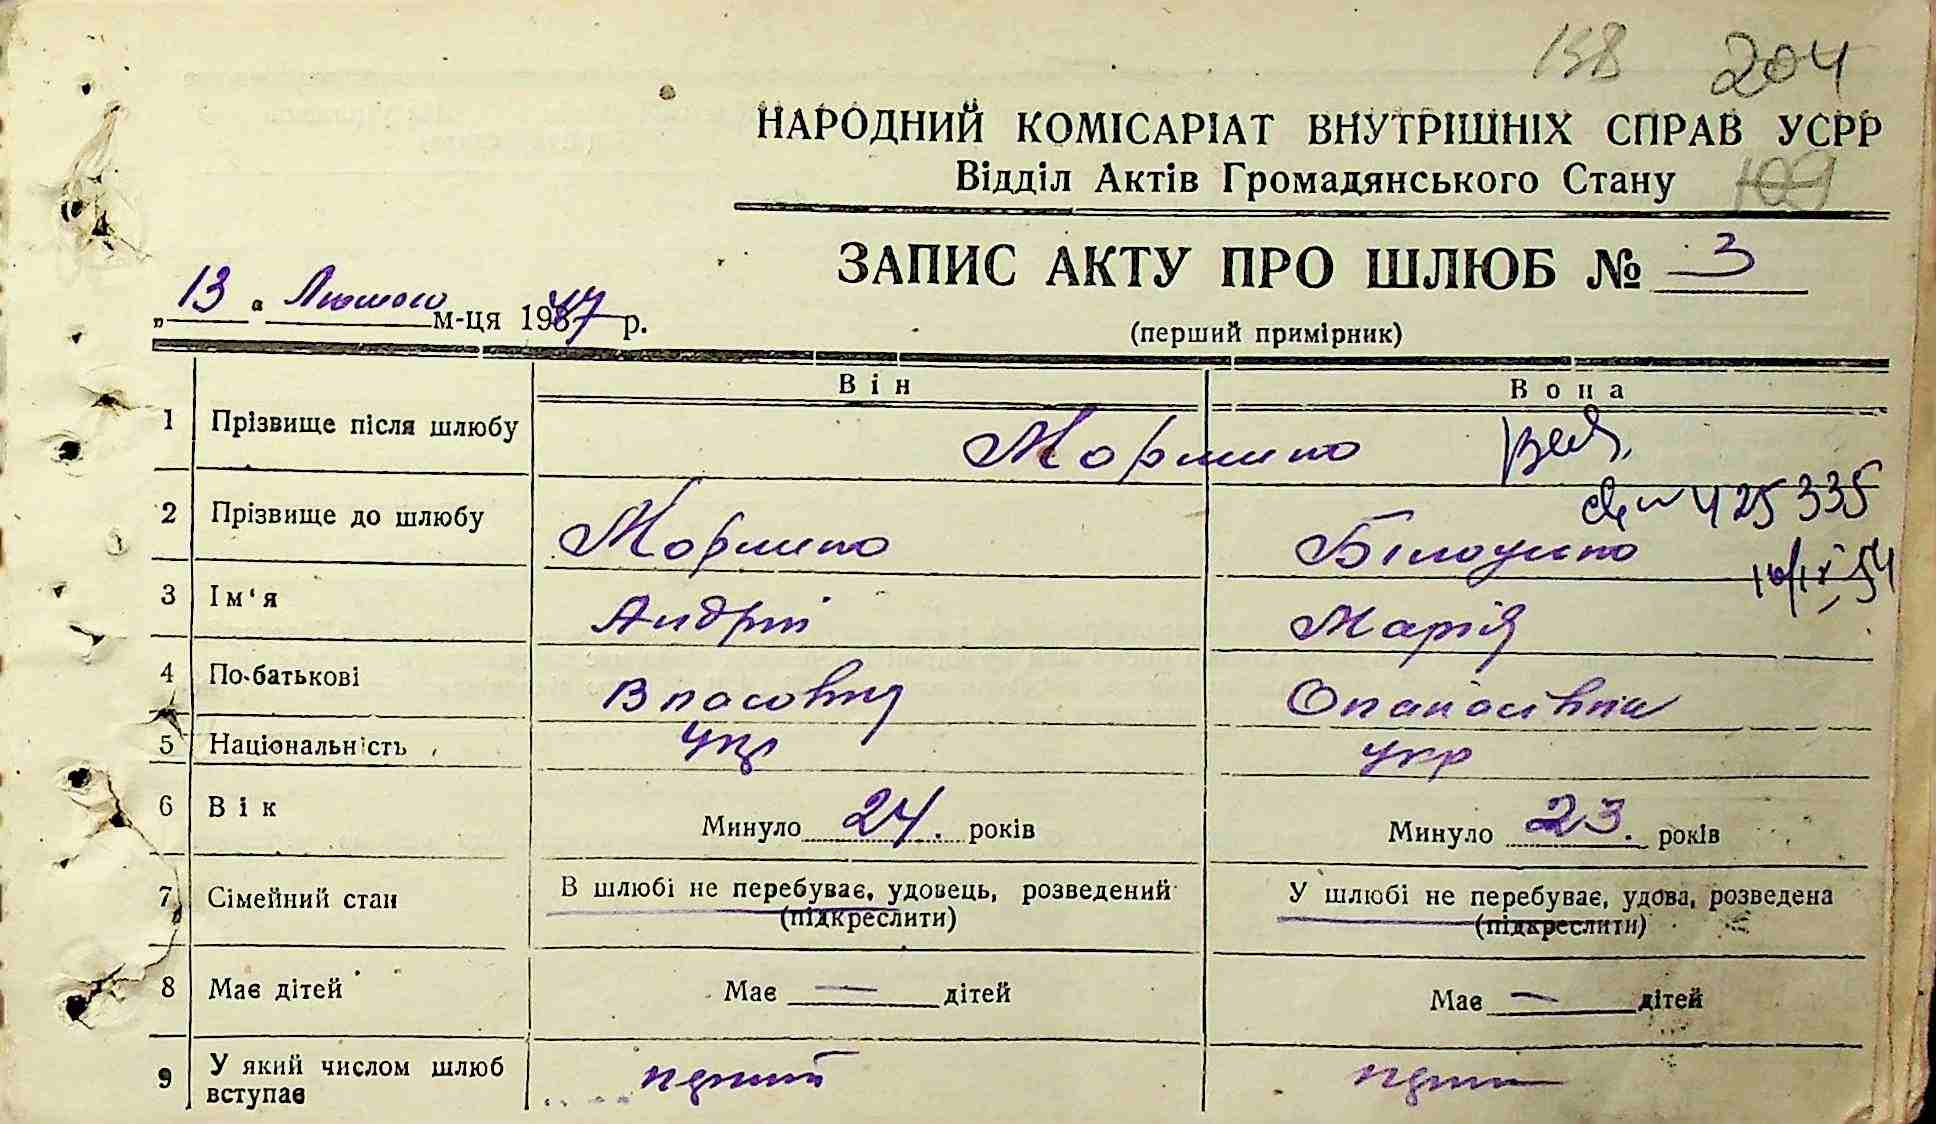 158 204
НАРОДНИЙ КОМІСАРІАТ ВНУТРІШНІХ СПРАВ УСРР
Відділ Актів Громадянського Стану 109
ЗАПИС АКТУ ПРО ШЛЮБ № 3
„ 13 “ Лютого м-ця 1937 р.
(перший примірник)
Він Вона
1 Прізвище після шлюбу
2 Прізвище до шлюбу
425335
3 Ім‘я Андрій Марія
4 По-батькові Власович Опанасівна
5 Національність укр укр
6 Вік Минуло 24. років Минуло 23. років
7 Сімейний стан В шлюбі не перебуває, удовець, розведений У шлюбі не перебуває, удова, розведена
(підкреслити) (підкреслити)
8 Має дітей Має — дітей Має — дітей
9 У який числом шлюб вступає перший